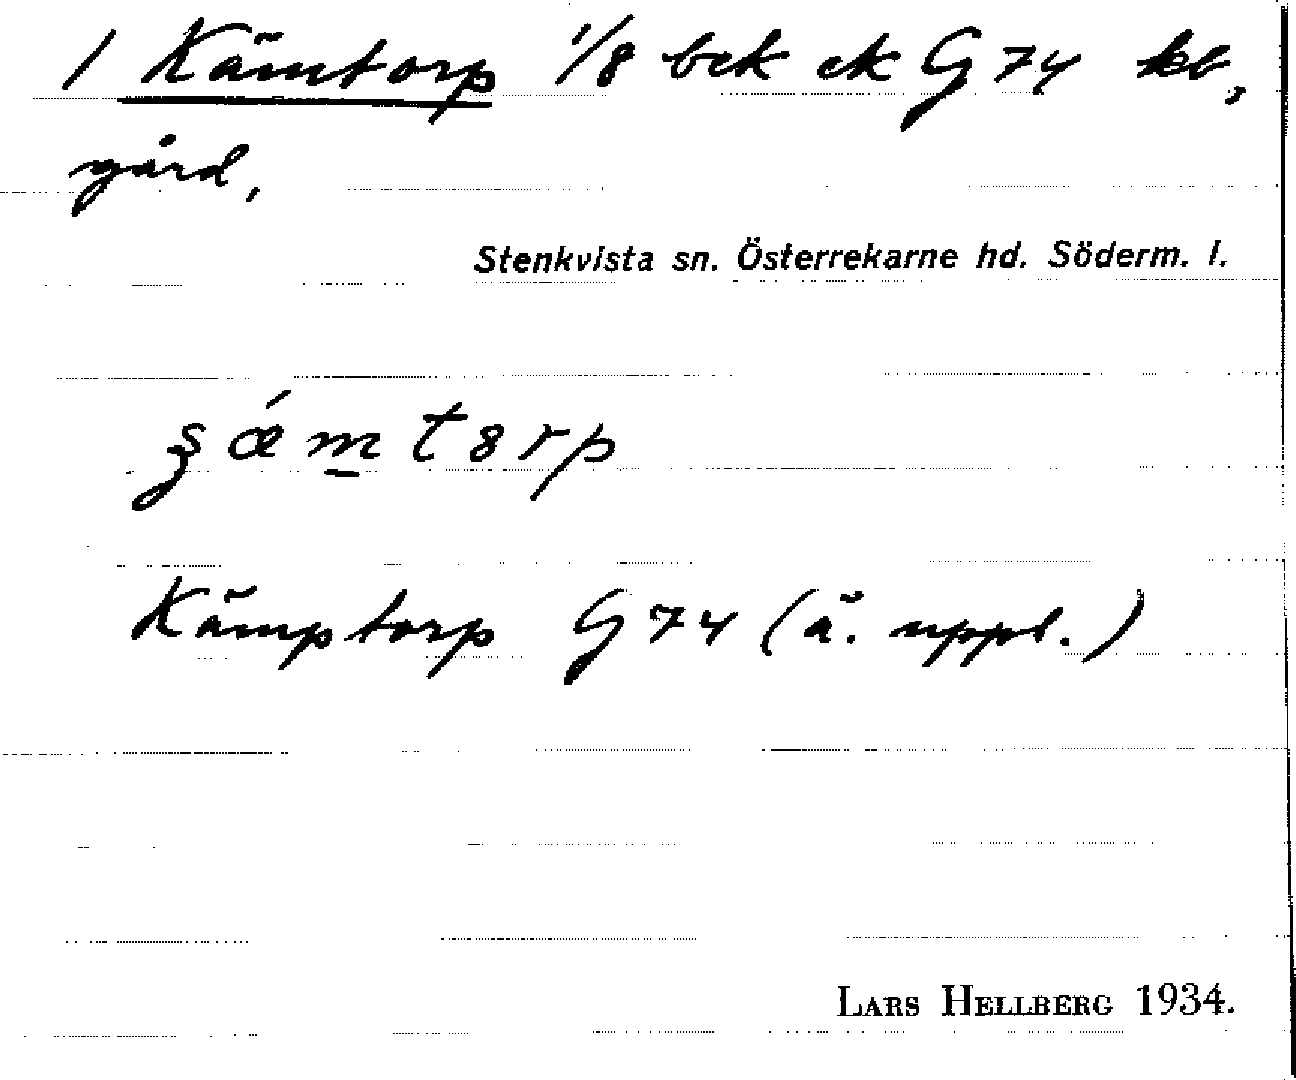 1 Kämtorp 1/8 bek ek G 74 kb,
gård,
Stenkvista sn. Österrekarne hd. Söderm. l.
Kämptorp G 74 (ä. uppl.)
LARS HELLBERG 1934.